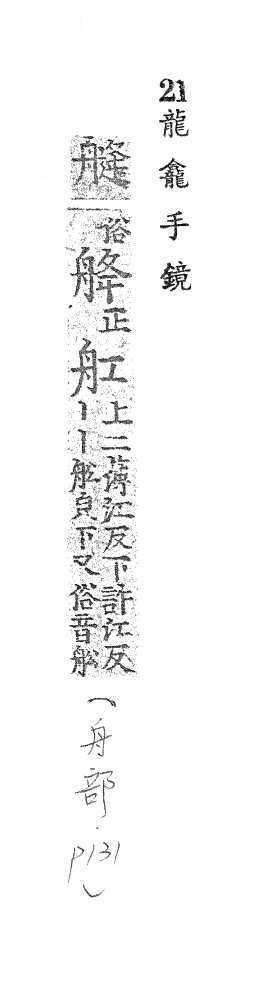 21龍龕手鏡
俗舽正舡上二薄江反下許江反丨丨舩皃下又俗音舩
(舟部.p131)